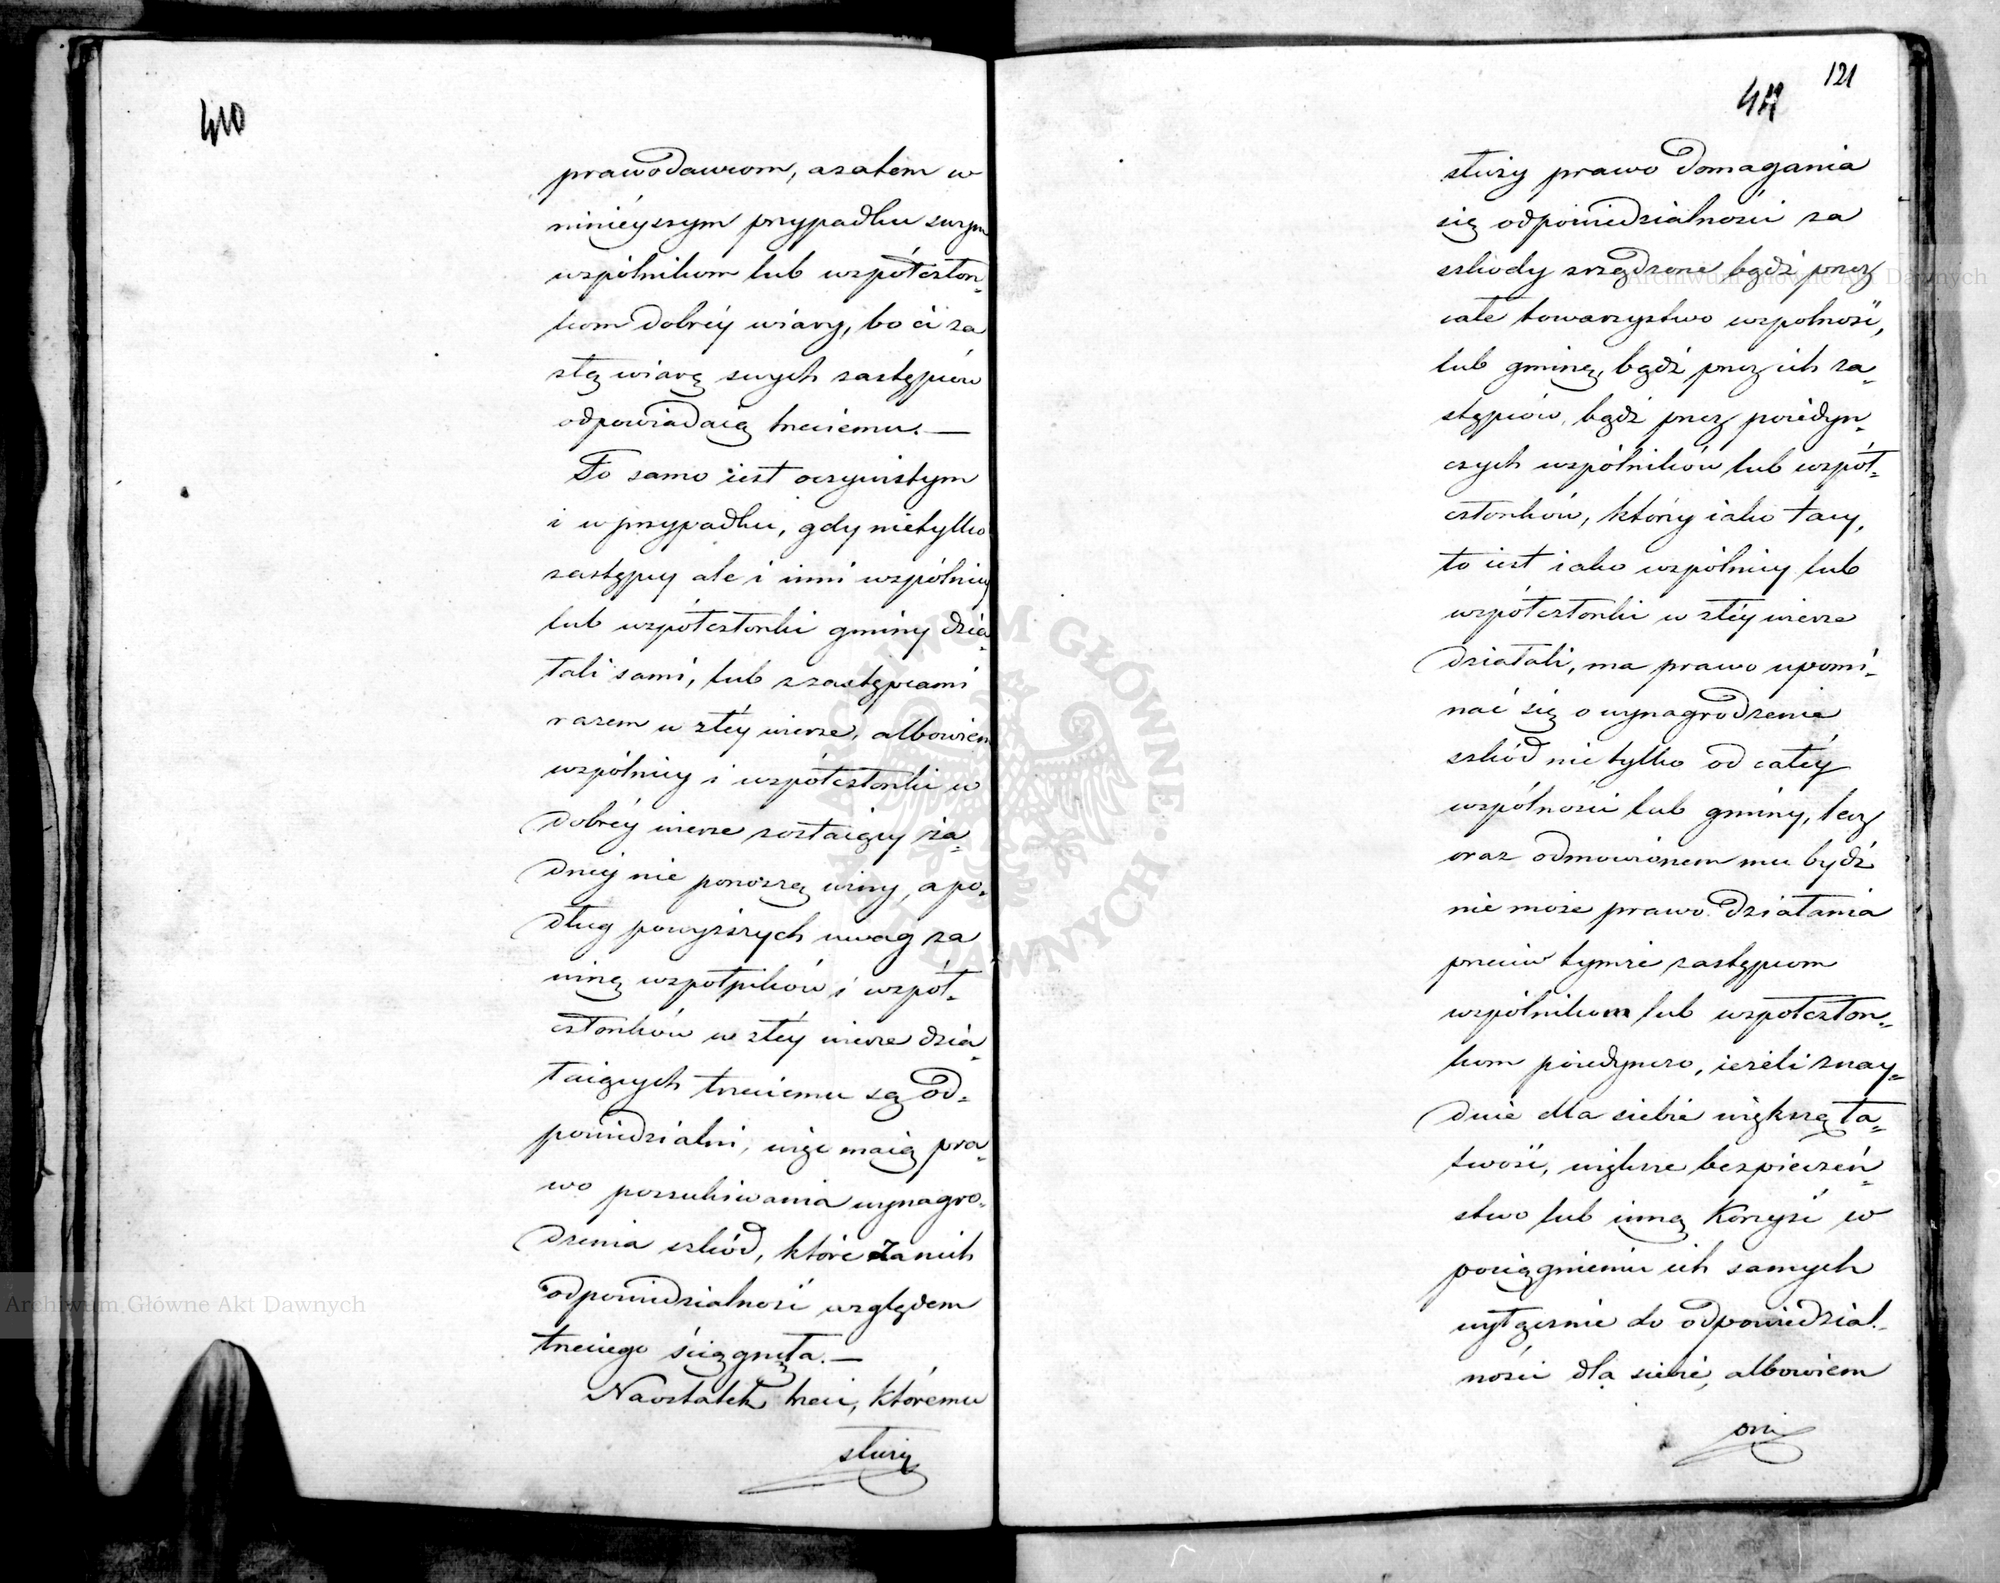 410
prawodawcom, azatem w
ninieyszym przypadku swym
wspólnikom lub współczłon-
kom dobréy wiary, bo ci za
złą wiarę swych zastępców
odpowiadaią trzeciemu.—
To samo iest oczywistym
i w przypadku, gdy nietylko
zastępcy ale i inni wspólnicy
lub współczłonki gminy dzia-
łali sami, lub z zastępcami
razem w złéy wierze, albowiem
wspólnicy i współczłonki w
dobréy wierze zostaiący ża-
dnéy nie ponoszą winy, a po-
dług powyższych uwag za
winę wspólników i współ-
członków w złéy wierze dzia-
łaiących trzeciemu są od-
powiedzialni, więc maią pra-
wo poszukiwania wynagro-
dzenia szkód, które za nich
odpowiedzialność względem
trzeciego ściągnęła.—
Naostatek trzeci, któremu
służy
121
411
służy prawo domagania
się odpowiedzialności za
szkody zrządzone bądź przez
całe towarzystwo wspolność,
lub gminę, bądź przez ich za-
stępców, bądź przez poiedyn-
czych wspólników lub współ-
członków, którzy iako tacy,
to iest iako wspólnicy lub
współczłonki w złéy wierze
działali, ma prawo upomi-
nać się o wynagrodzenie
szkód nie tylko od całéy
wspólności lub gminy, lecz
oraz odmowionem mu bydź
nie może prawo działania
przeciw tymże zastępcom
wspólnikom lub współczłon-
kom poiedynczo, ieżeli znay-
duie dla siebie większą ła-
twość, większe bezpieczeń-
stwo lub inną korzyść w
pociągnieniu ich samych
wyłącznie do odpowiedzial-
ności dla siebie, albowiem
oni
Archiwum Główne Akt Dawnych
Archiwum Główne Akt Dawnych
ARCHIWUM GŁÓWNE AKT DAWNYCH